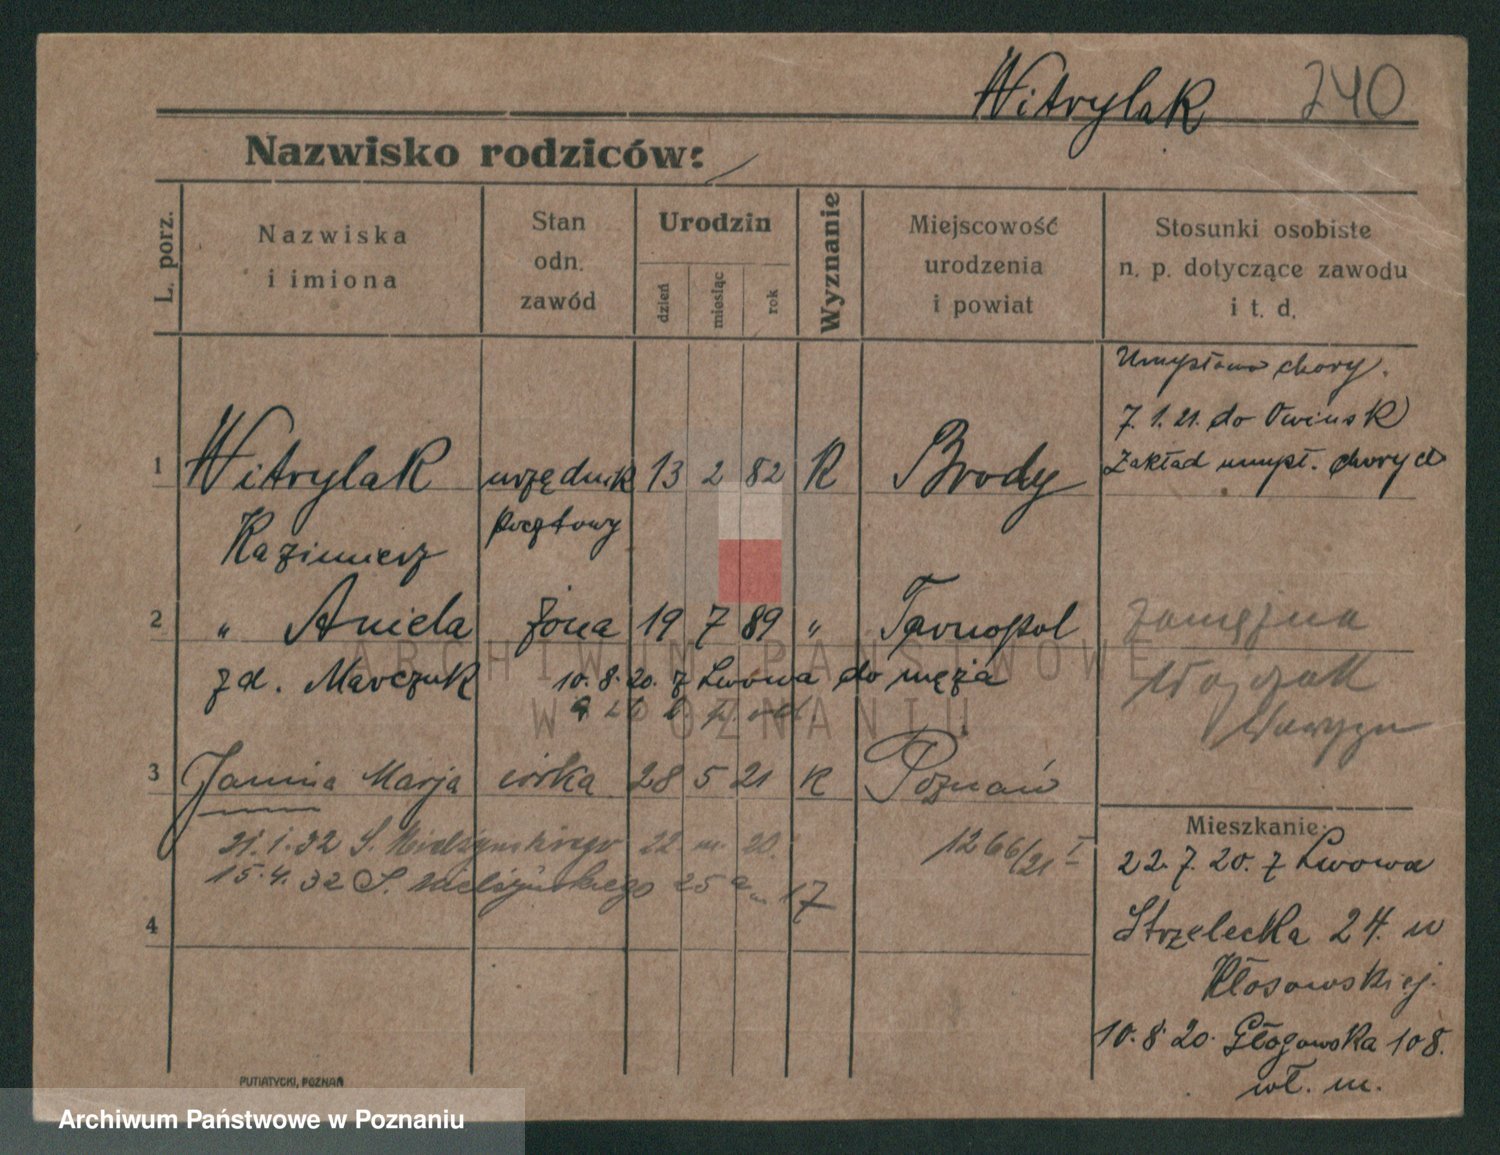 Witrylak 240
Nazwisko rodziców:
L. porz.
Nazwiska
i imiona
Stan
odn.
zawód
Urodzin
dzień
miesiąc
rok
Wyznanie
Miejscowość
urodzenia
i powiat
Stosunki osobiste
n. p. dotyczące zawodu
i t. d.
Umysłowo chory.
7. 1. 21. do Owińsk
Zakład umysł. chorych
1 Witrylak urzędnik 13 2 82 R Brody
Kazimierz pocztowy
2 " Aniela żona 19 7 89 " Tarnopol
zd. Marczuk 10. 8. 20. z Lwowa do męża
zamężna
3 Janina Marja córka 28 5 21 R Poznań
21. 1. 32 S. Mielżyńskiego 22 m. 20.
1266/21 I
15. 4. 32 S. Mielżyńskiego 25a m 17
4
Mieszkanie:
22. 7. 20. z Lwowa
Strzelecka 24. u
Kłosowskiej.
10. 8. 20. Głogowska 108.
wł. m.
PUTIATYCKI, POZNAŃ
ARCHIWUM PAŃSTWOWE
W POZNANIU
Archiwum Państwowe w Poznaniu